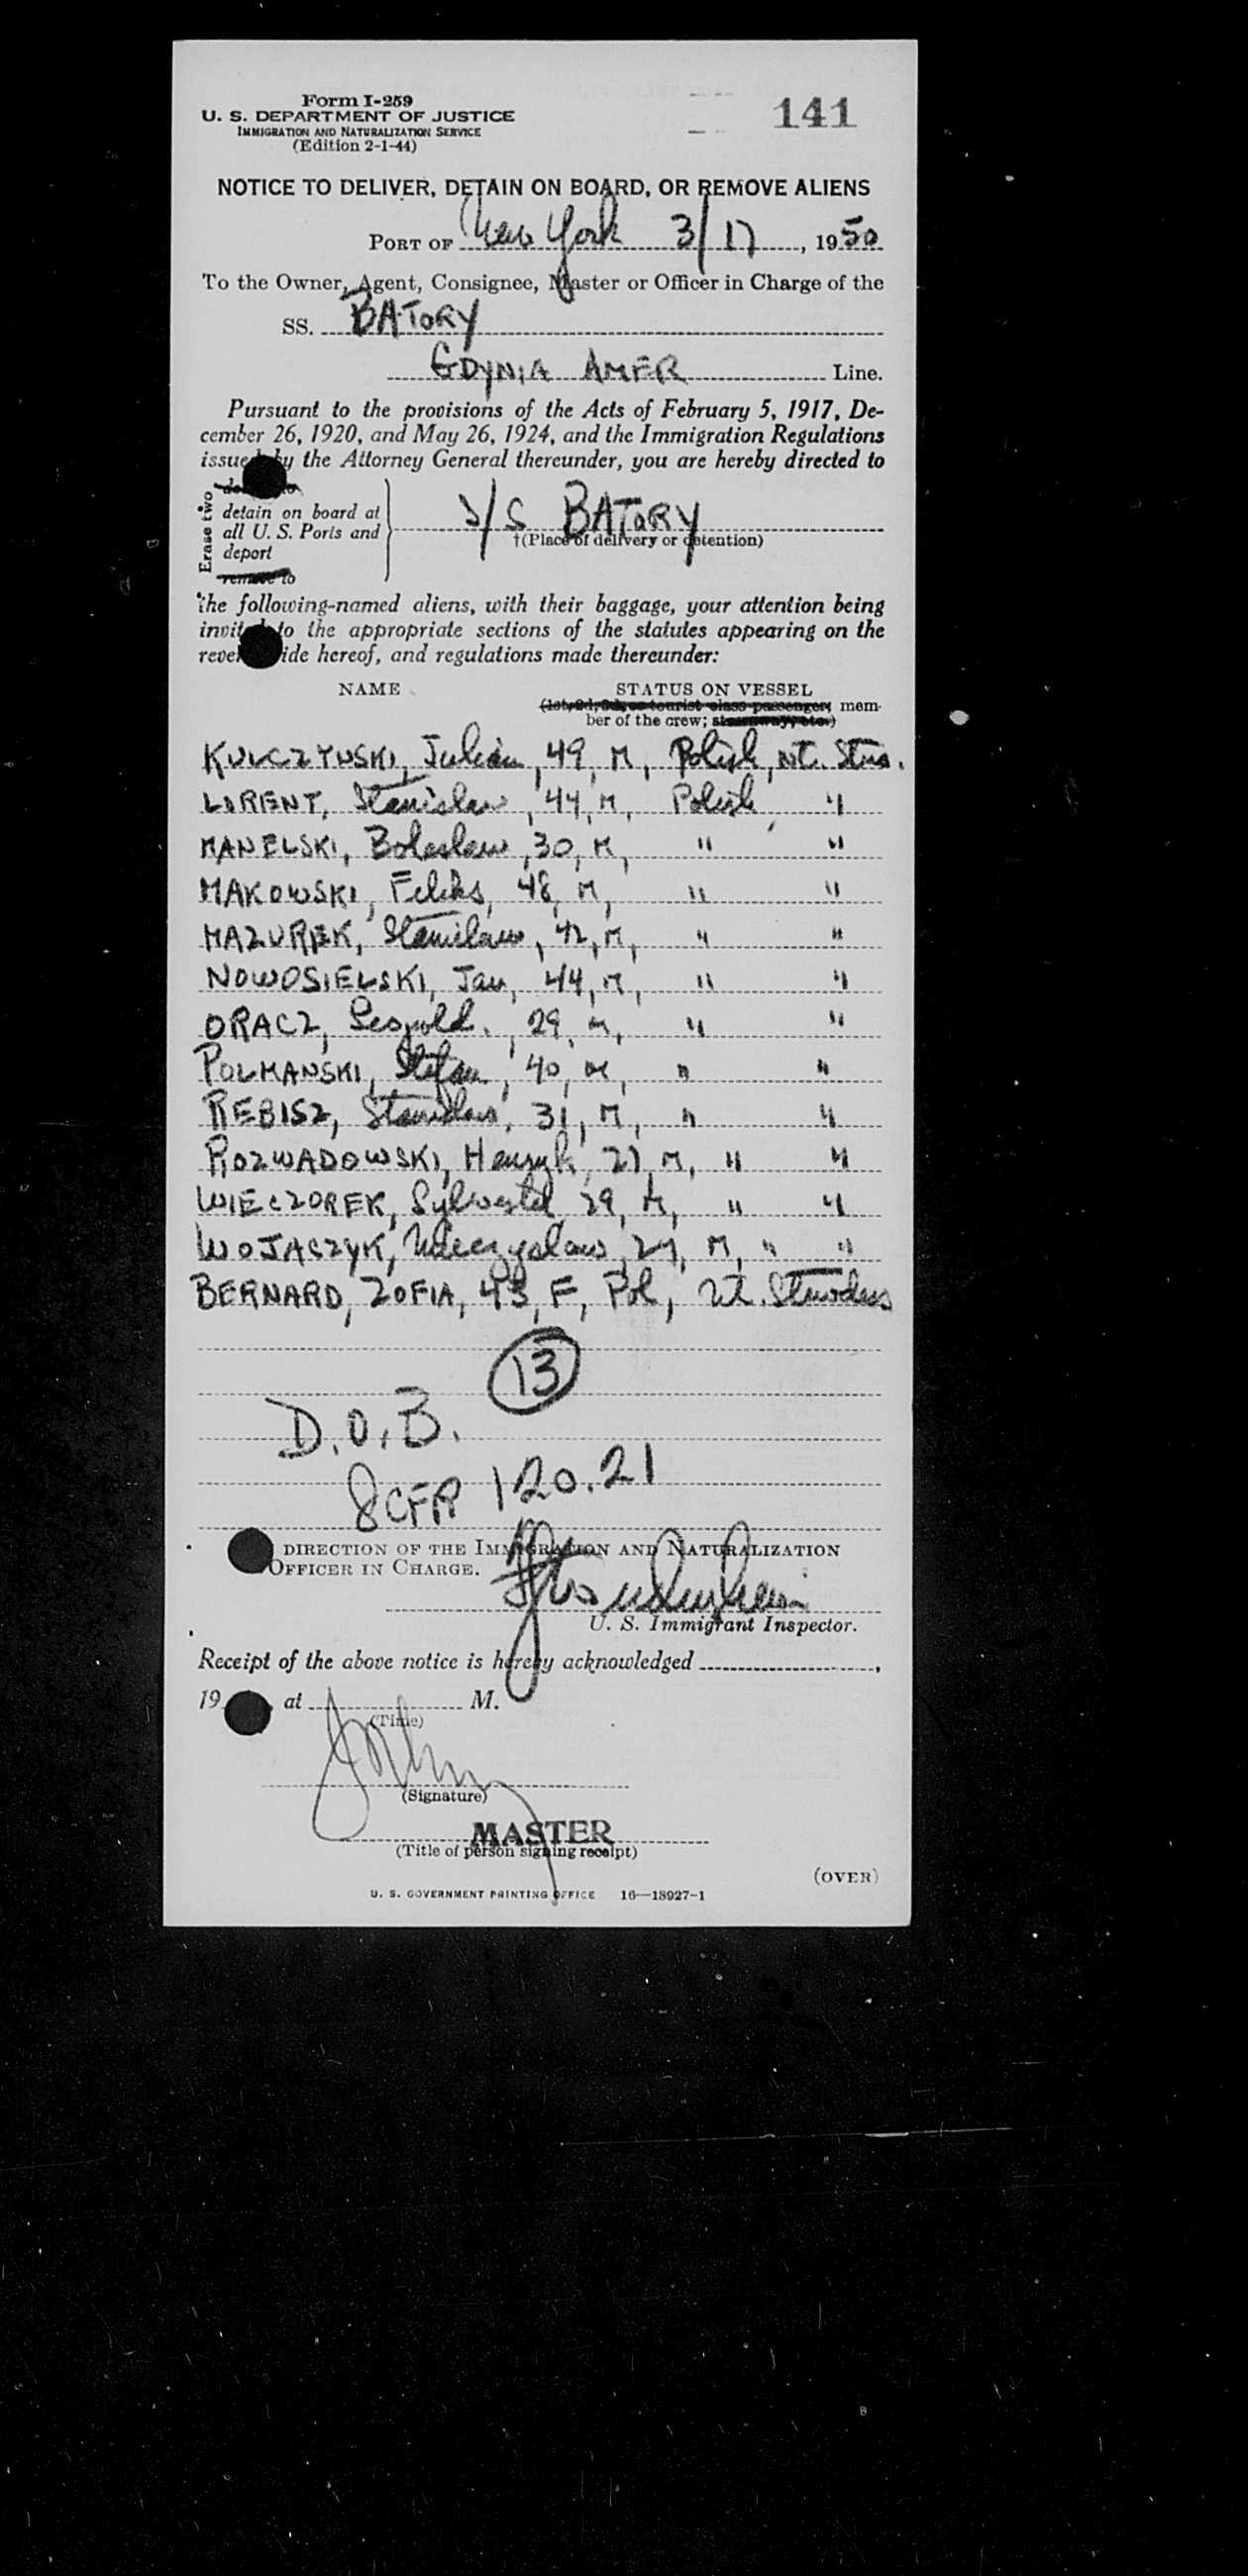 Form I-259
U. S. DEPARTMENT OF JUSTICE
IMMIGRATION AND NATURALIZATION SERVICE
(Edition 2-1-44)
141
NOTICE TO DELIVER, DETAIN ON BOARD, OR REMOVE ALIENS
PORT OF New York 3/17, 1950
To the Owner, Agent, Consignee, Master or Officer in Charge of the
SS. BATORY
GDYNIA AMER Line.
Pursuant to the provisions of the Acts of February 5, 1917, De-
cember 26, 1920, and May 26, 1924, and the Immigration Regulations
issued by the Attorney General thereunder, you are hereby directed to
Erase two
detain on board at
all U. S. Ports and
deport
remove to
S/S BATORY
†(Place of delivery or detention)
the following-named aliens, with their baggage, your attention being
invited to the appropriate sections of the statutes appearing on the
reverse side hereof, and regulations made thereunder:
NAME STATUS ON VESSEL
(1st, 2d, 3d, or tourist class passenger; mem-
ber of the crew; stowaway, etc.)
KULCZYNSKI, Julian, 49, M, Polish, nt. Stws.
LORENT, Stanislaw, 44, M, Polish "
MANELSKI, Boleslaw, 30, M, " "
MAKOWSKI, Feliks, 48, M, " "
MAZUREK, Stanislaw, 42, M, " "
NOWOSIELSKI, Jan, 44, M, " "
ORACZ, Leopold, 29, M, " "
POLMANSKI, Stefan, 40, M, " "
REBISZ, Stanislaw, 31, M, " "
ROZWADOWSKI, Henryk, 27, M, " "
WIECZOREK, Sylwester 29, M, " "
WOJACZYK, Mieczyslaw, 27, M, " "
BERNARD, ZOFIA, 43, F, Pol, nt. Stwrdess
13
D.O.B.
8 CFR 120.21
DIRECTION OF THE IMMIGRATION AND NATURALIZATION
OFFICER IN CHARGE.
U. S. Immigrant Inspector.
Receipt of the above notice is hereby acknowledged
19 , at M.
(Time)
(Signature)
MASTER
(Title of person signing receipt)
(OVER)
U. S. GOVERNMENT PRINTING OFFICE 16—18927-1